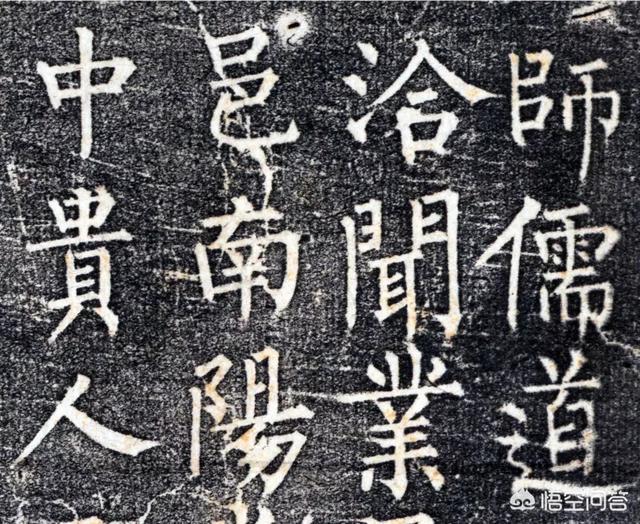 師儒道
洽聞業
邑南陽
中貴人
悟空问答